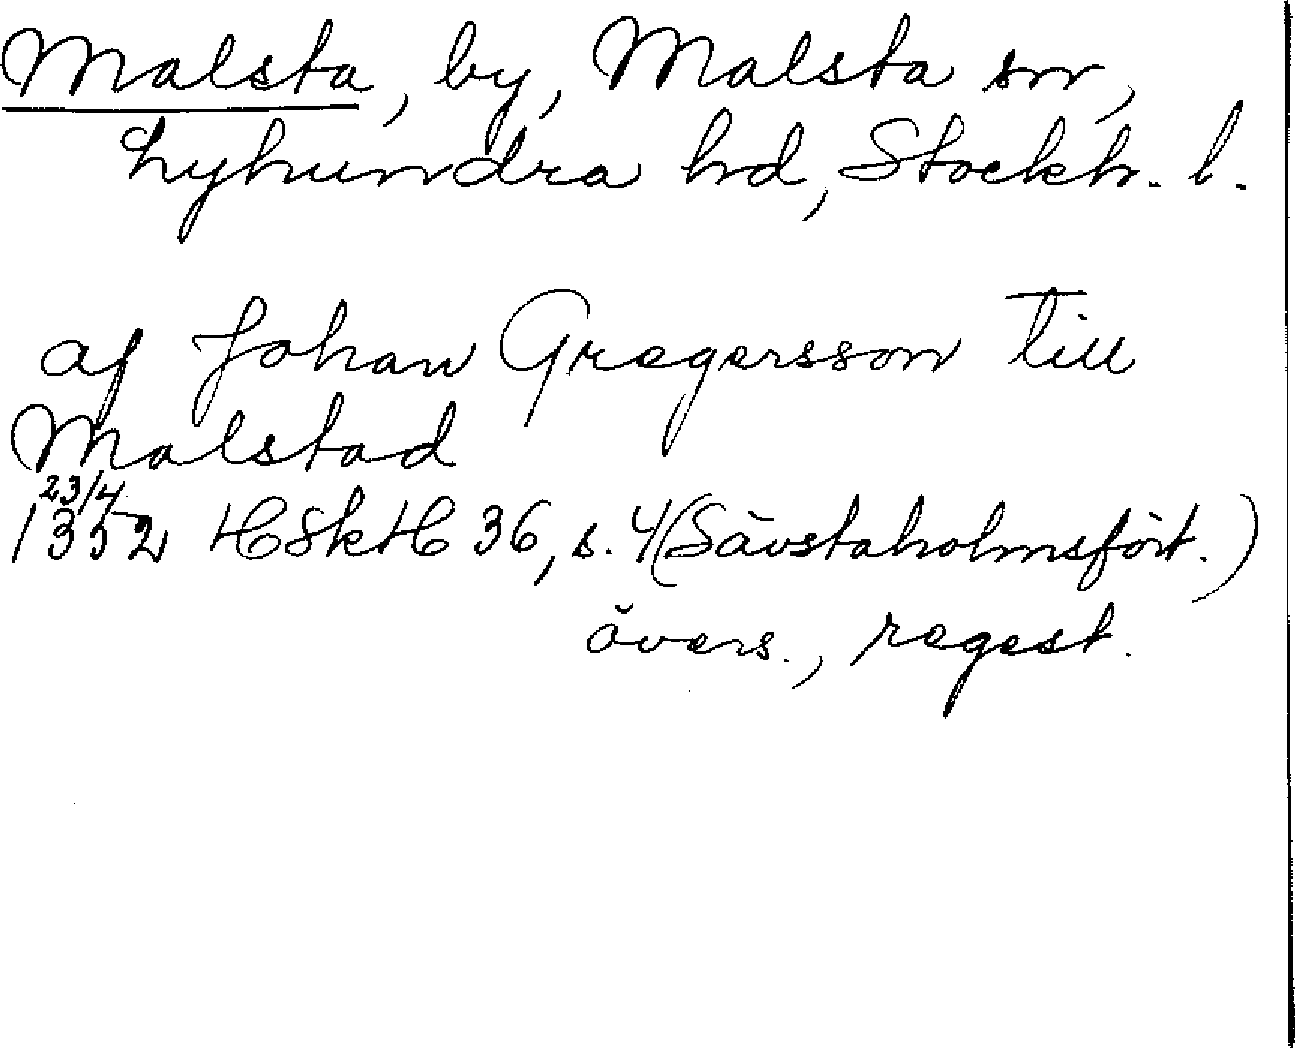 Malsta, by, Malsta sn,
Lyhundra hd, Stockh. l.
af Johan Gregersson till
Malstad
23/4
1352 HSkH 36, s. 4 (Sävstaholmsfört.)
övers., regest.